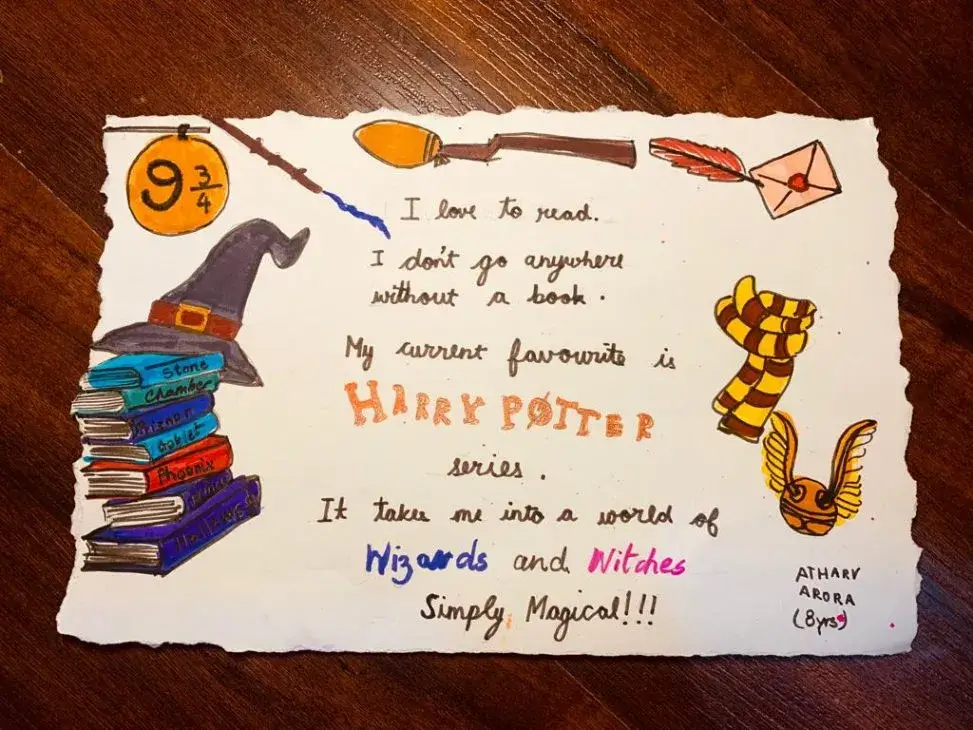 9 3/4
I love to read.
I don't go anywhere
without a book.
My current favourite is
HARRY POTTER
series.
It takes me into a world of
Wizards and Witches
Simply Magical!!!
Stone
Chamber
Prisoner
Goblet
Phoenix
Prince
Hallows
ATHARV
ARORA
(8yrs)